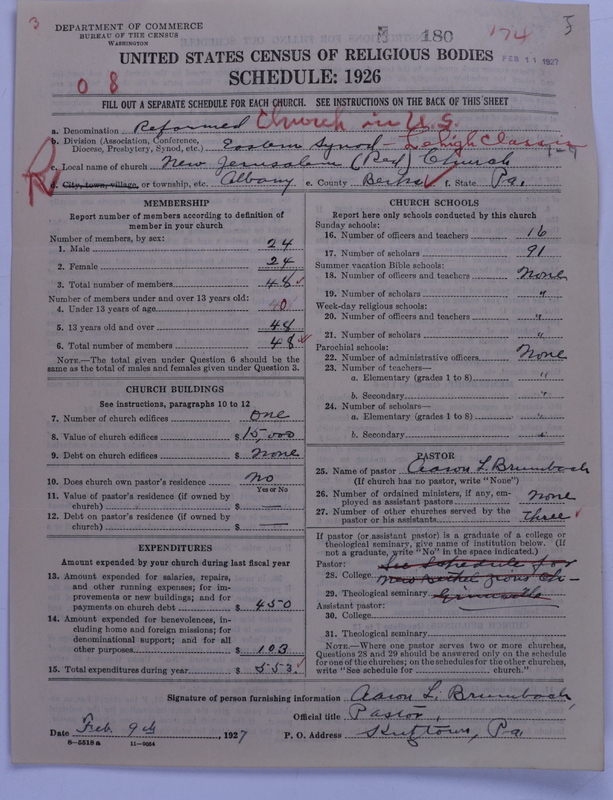 3
DEPARTMENT OF COMMERCE
BUREAU OF THE CENSUS
WASHINGTON
180
174
5
UNITED STATES CENSUS OF RELIGIOUS BODIES
FEB 11 1927
SCHEDULE: 1926
0 8
FILL OUT A SEPARATE SCHEDULE FOR EACH CHURCH. SEE INSTRUCTIONS ON THE BACK OF THIS SHEET
a. Denomination Reformed Church in U.S.
b. Division (Association, Conference, Diocese, Presbytery, Synod, etc.) Eastern Synod - Lehigh Classis
c. Local name of church New Jerusalem (Red) Church
R
d. City, town, village, or township, etc. Albany e. County Berks f. State Pa.
MEMBERSHIP
Report number of members according to definition of member in your church
Number of members, by sex:
1. Male 24
2. Female 24
3. Total number of members 48
Number of members under and over 13 years old:
4. Under 13 years of age 0
5. 13 years old and over 48
6. Total number of members 48
NOTE.—The total given under Question 6 should be the same as the total of males and females given under Question 3.
CHURCH BUILDINGS
See instructions, paragraphs 10 to 12
7. Number of church edifices One
8. Value of church edifices $ 15,000
9. Debt on church edifices $ None
10. Does church own pastor's residence No
Yes or No
11. Value of pastor's residence (if owned by church) $ —
12. Debt on pastor's residence (if owned by church) $ —
EXPENDITURES
Amount expended by your church during last fiscal year
13. Amount expended for salaries, repairs, and other running expenses; for improvements or new buildings; and for payments on church debt $ 450
14. Amount expended for benevolences, including home and foreign missions; for denominational support; and for all other purposes $ 103
15. Total expenditures during year $ 553
CHURCH SCHOOLS
Report here only schools conducted by this church
Sunday schools:
16. Number of officers and teachers 16
17. Number of scholars 91
Summer vacation Bible schools:
18. Number of officers and teachers None
19. Number of scholars "
Week-day religious schools:
20. Number of officers and teachers "
21. Number of scholars "
Parochial schools:
22. Number of administrative officers None
23. Number of teachers—
a. Elementary (grades 1 to 8) "
b. Secondary "
24. Number of scholars—
a. Elementary (grades 1 to 8) "
b. Secondary "
PASTOR
25. Name of pastor Aaron L. Brumbach
(If church has no pastor, write "None")
26. Number of ordained ministers, if any, employed as assistant pastors None
27. Number of other churches served by the pastor or his assistants Three
If pastor (or assistant pastor) is a graduate of a college or theological seminary, give name of institution below. (If not a graduate, write "No" in the space indicated.)
Pastor: See Schedule for
28. College New Bethel Zions Ch-
29. Theological seminary
Assistant pastor:
30. College
31. Theological seminary
NOTE.—Where one pastor serves two or more churches, Questions 28 and 29 should be answered only on the schedule for one of the churches; on the schedules for the other churches, write "See schedule for church."
Signature of person furnishing information Aaron L. Brumbach
Official title Pastor,
Date Feb. 9th, 1927 P. O. Address Kutztown, Pa.
8-5518a 11-9054